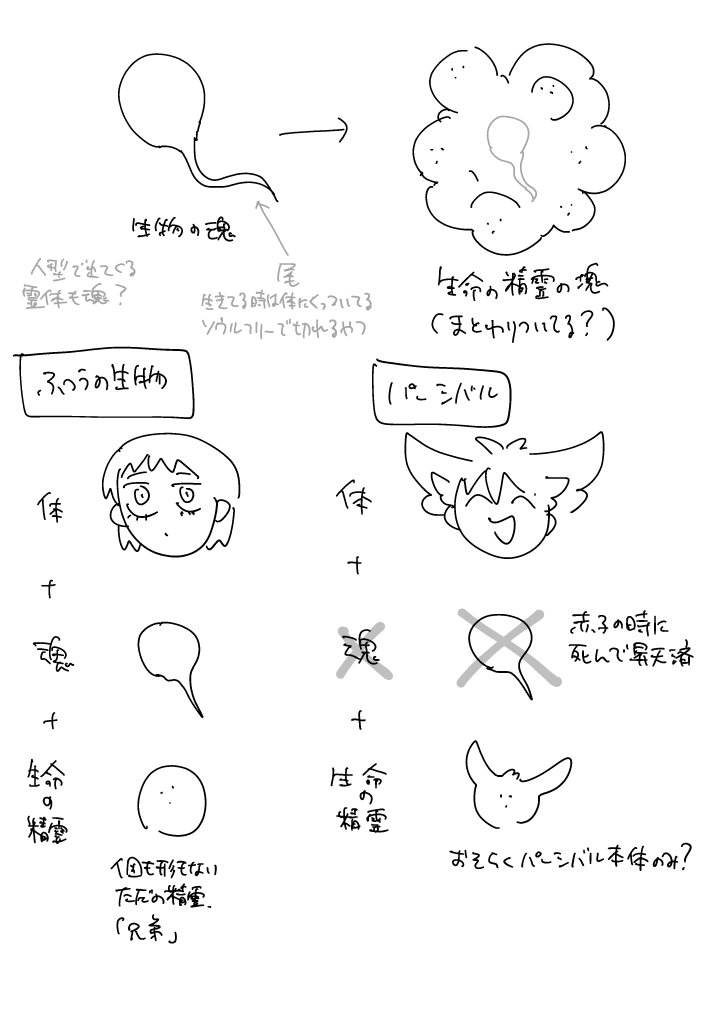 生物の魂
人型で出てくる
霊体も魂？
尾
生きてる時は体にくっついてる
ソウルフリーで切れるやつ
生命の精霊の塊
(まとわりついてる？)
ふつうの生物
体
+
魂
+
生命
の
精霊
個も形もない
ただの精霊
「兄弟」
パーシバル
体
+
魂
赤子の時に
死んで昇天済
+
生命
の
精霊
おそらくパーシバル本体のみ？